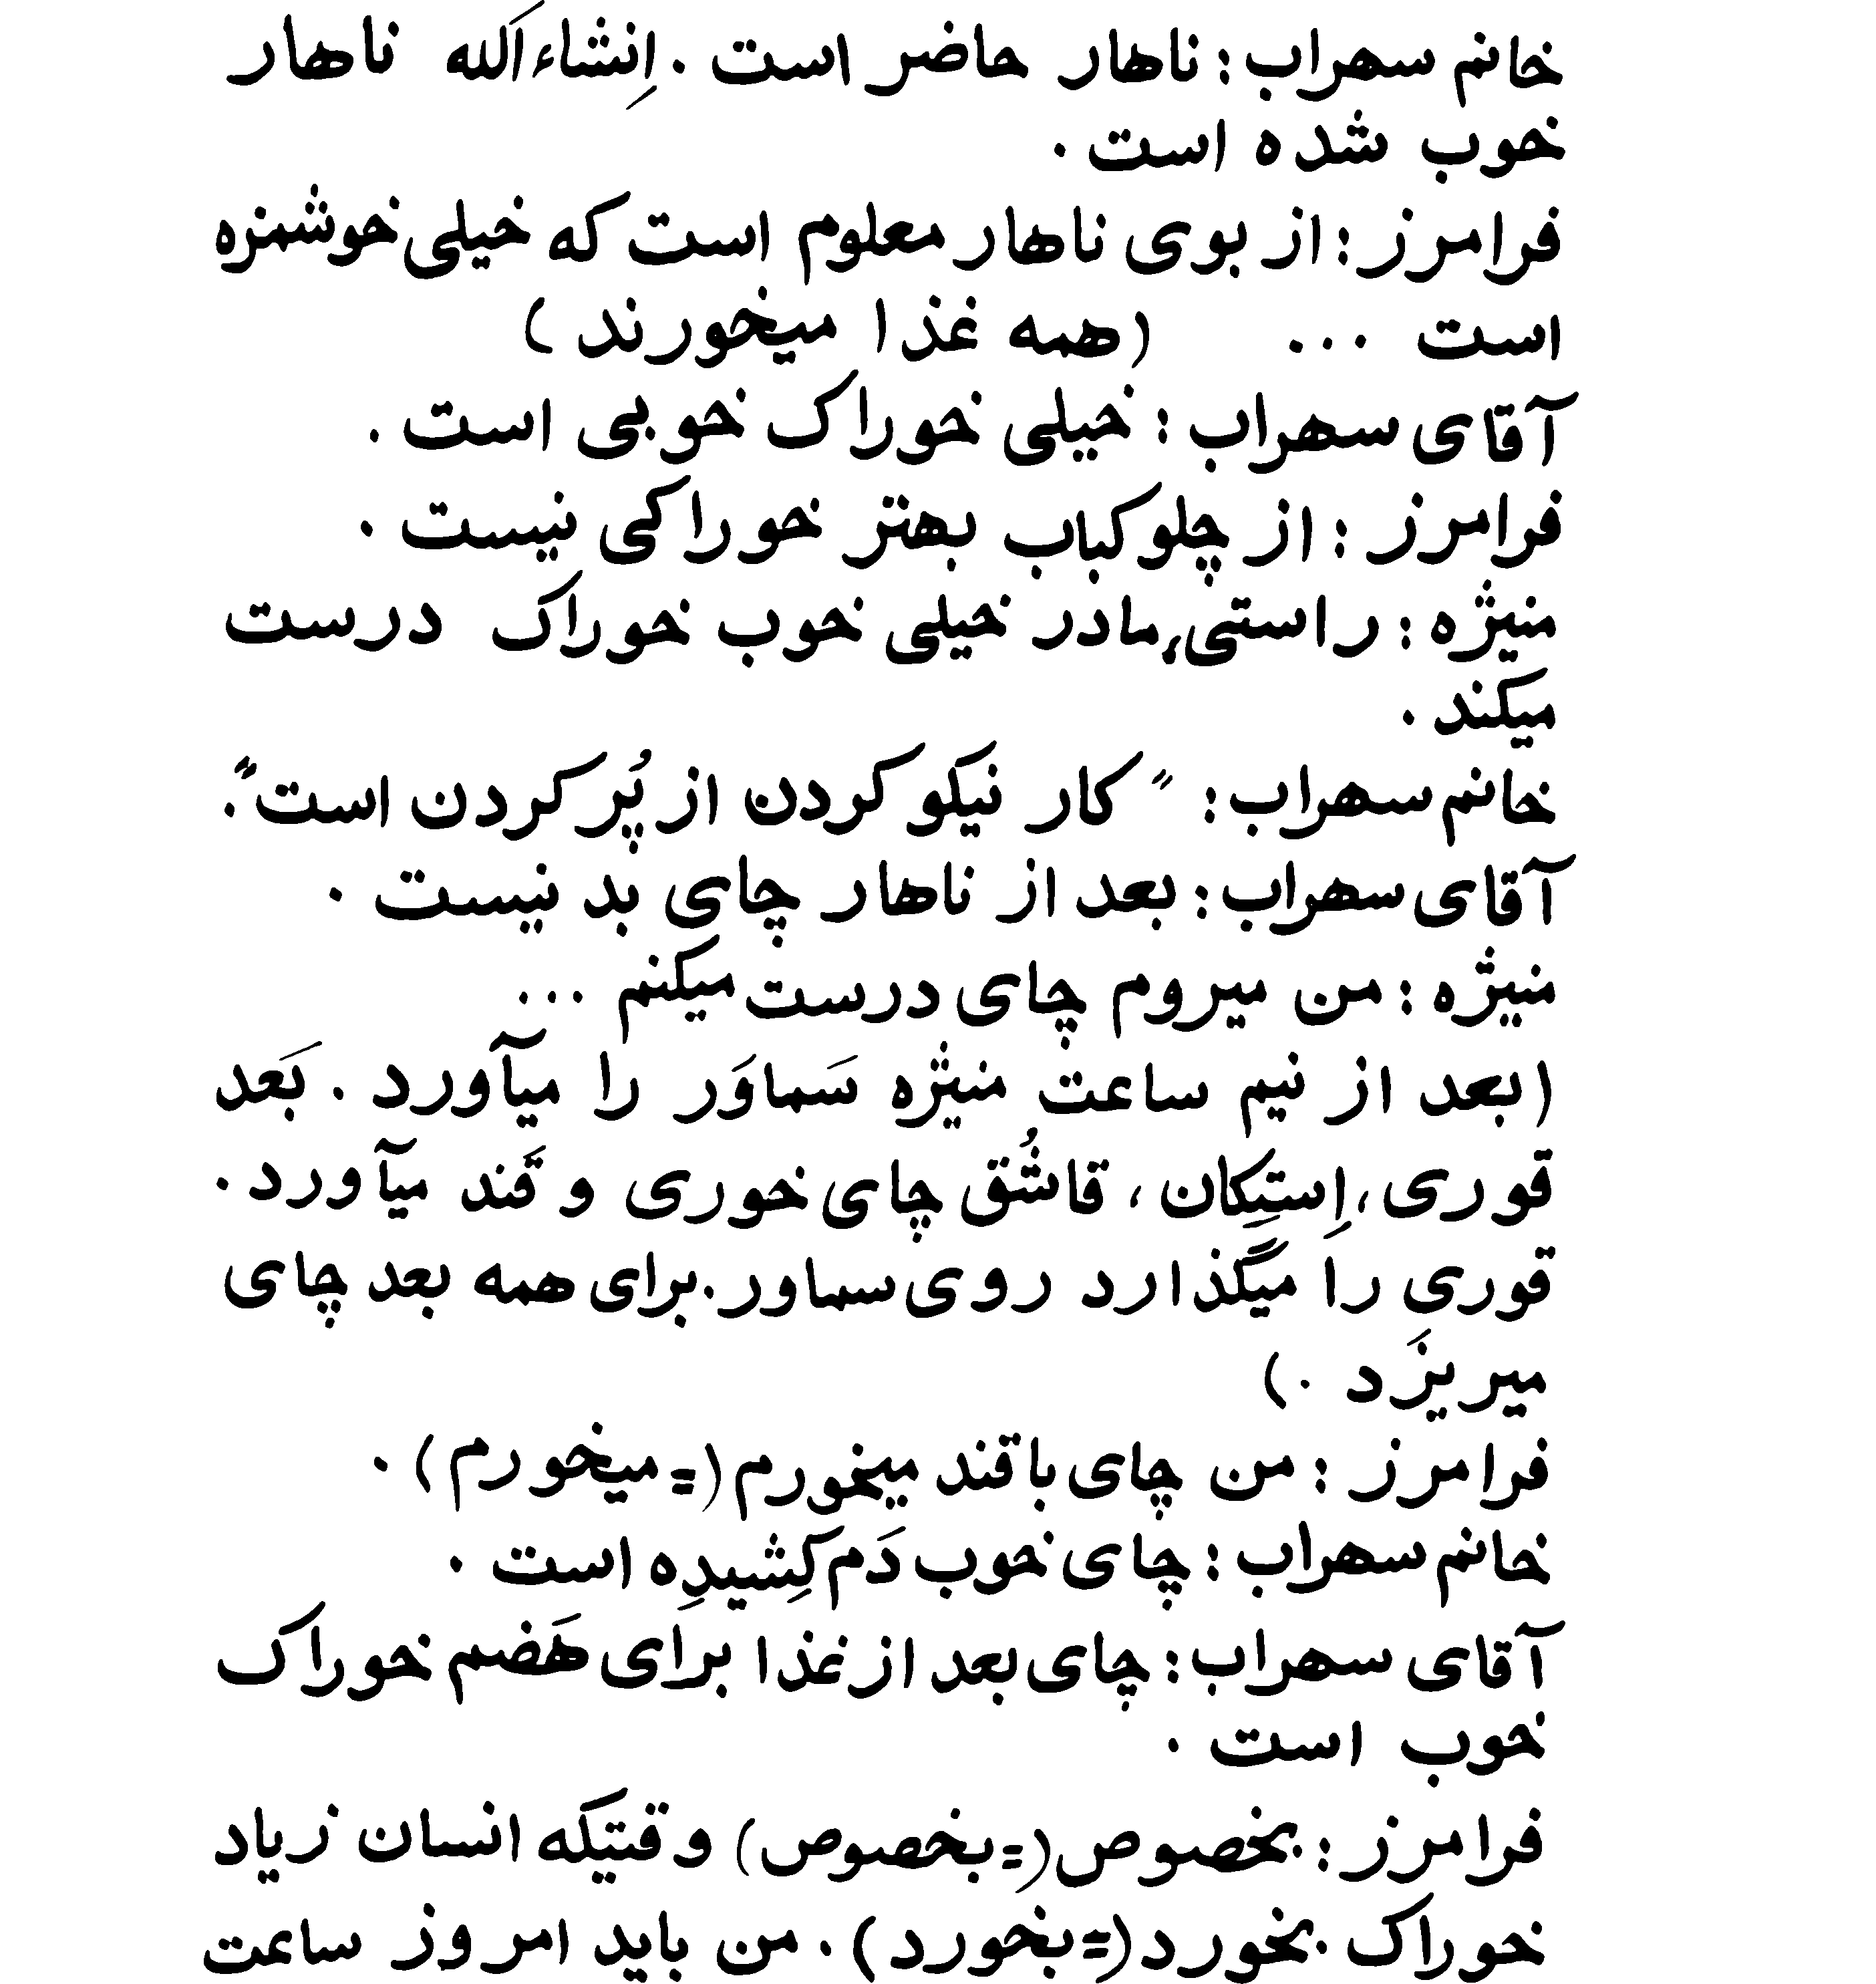 خانم سهراب: ناهار حاضر است. اِنشاءاَلله ناهار
خوب شده است.
فرامرز: از بوی ناهار معلوم است که خیلی خوشمزه
است ... (همه غذا میخورند)
آقای سهراب: خیلی خوراک خوبی است.
فرامرز: از چلوکباب بهتر خوراکی نیست.
منیژه: راستی، مادر خیلی خوب خوراک درست
میکند.
خانم سهراب: "کار نیکو کردن از پُر کردن است".
آقای سهراب: بعد از ناهار چای بد نیست.
منیژه: من میروم چای درست میکنم ...
(بعد از نیم ساعت منیژه سَماوَر را میآورد. بَعد
قوری، اِستِکان، قاشُق چای خوری و قَند میآورد.
قوری را میگذارد روی سماور. برای همه بعد چای
میریزَد.)
فرامرز: من چای با قند میخورم (= میخورم).
خانم سهراب: چای خوب دَم کِشیدِه است.
آقای سهراب: چای بعد از غذا برای هَضم خوراک
خوب است.
فرامرز: بخصوص (= بخصوص) وقتیکه انسان زیاد
خوراک بخورد (= بخورد). من باید امروز ساعت